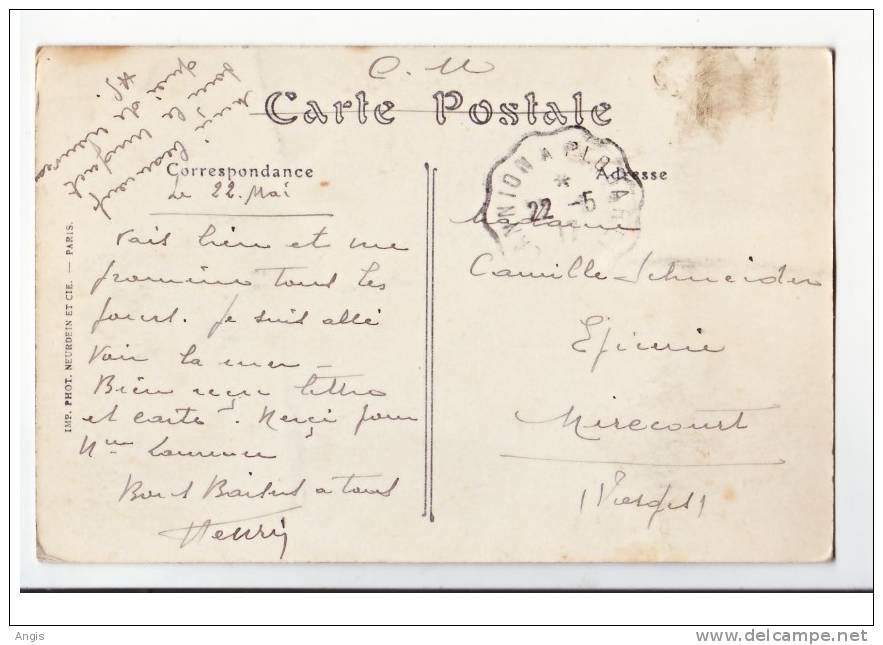 C. M
Carte Postale
Correspondance
Adresse
LANNION A PLOUAR
22 -5
Le 22. Mai
Vais bien et me
promène tous les
jours. Je suis allé
voir la mer –
Bien reçu lettre
et carte. Merci pour
Mme Laurence
Bons Baisers a tous
Henri
Madame
Camille Schneider
Epicerie
Mirecourt
(Vosges)
IMP. PHOT. NEURDEIN ET CIE. — PARIS.
Angis
delcampe.net